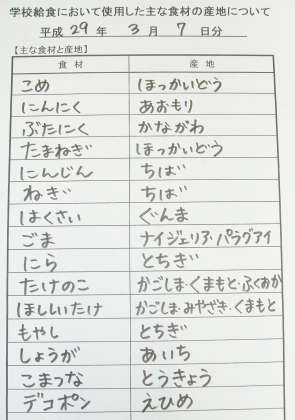 学校給食において使用した主な食材の産地について
平成 29 年 3 月 7 日分
【主な食材と産地】
食材 産地
こめ ほっかいどう
にんにく あおもり
ぶたにく かながわ
たまねぎ ほっかいどう
にんじん ちば
ねぎ ちば
はくさい ぐんま
ごま ナイジェリア・パラグアイ
にら とちぎ
たけのこ かごしま・くまもと・ふくおか
ほししいたけ かごしま・みやざき・くまもと
もやし とちぎ
しょうが あいち
こまつな とうきょう
デコポン えひめ